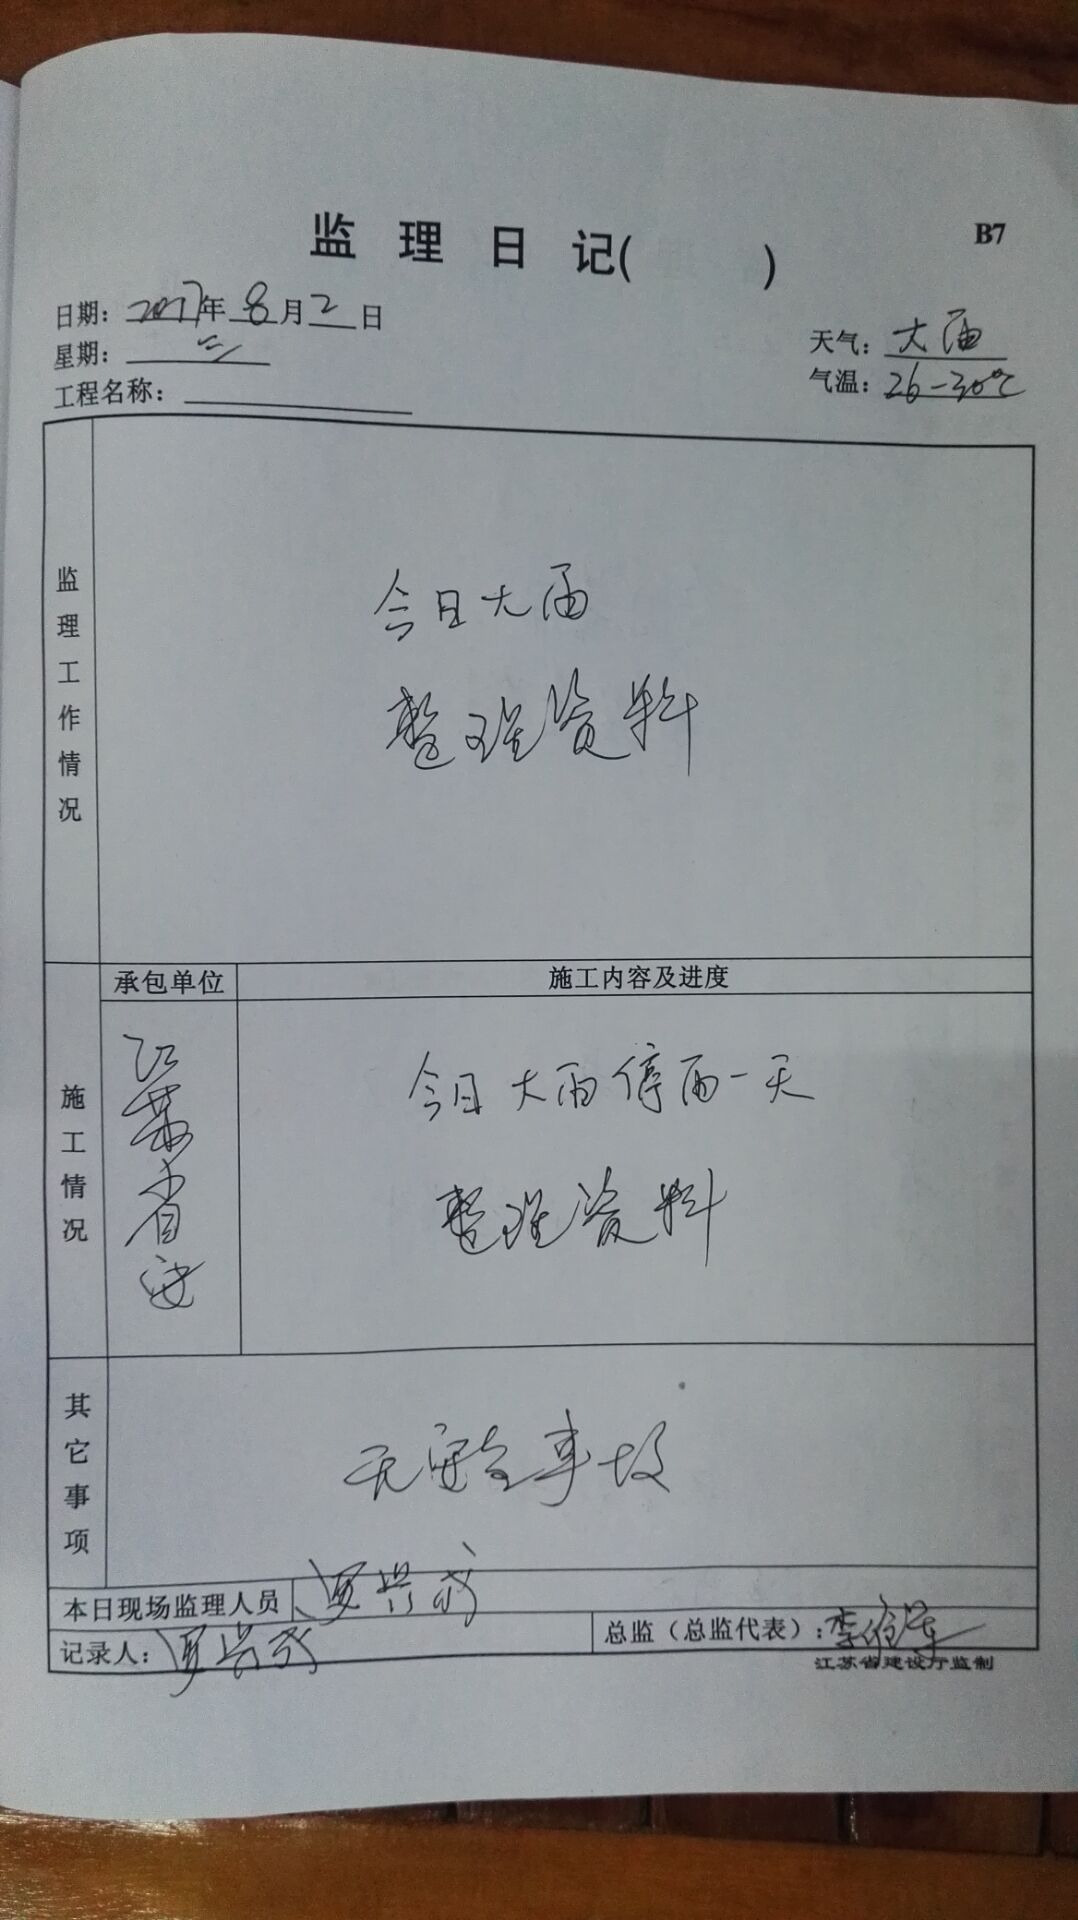 B7
监理日记( )
日期: 2017年8月2日
星期: 三
天气: 大雨
工程名称:
气温: 26-30℃
监理工作情况
今日大雨
整理资料
承包单位
施工内容及进度
施工情况
江苏省安
今日大雨停雨一天
整理资料
其它事项
无安全事故
本日现场监理人员
记录人:
总监（总监代表）: 李
江苏省建设厅监制